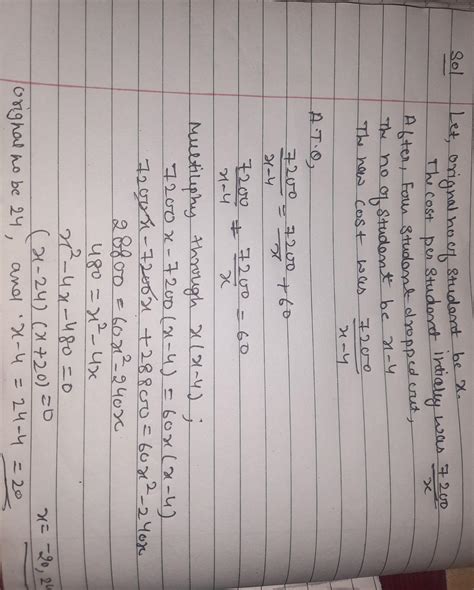 Sol
Let, original no of student be x.
The cost per student intialy was 7200/x
After, Four student dropped out,
The no of student be x-4
The new cost was 7200/x-4
A.T.Q,
7200/x-4 = 7200/x + 60
7200/x-4 ≠ 7200/x = 60
Multiplying through x(x-4);
7200x-7200(x-4) = 60x(x-4)
7200x-7200x+28800=60x²-240x
28800=60x²-240x
480=x²-4x
x²-4x-480=0
(x-24)(x+20)=0 x=-20,24
original no be 24, and x-4 = 24-4 = 20